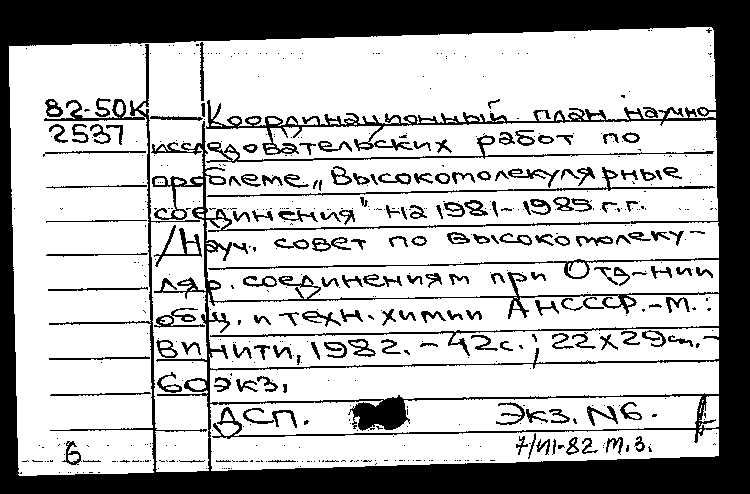 82-50К
2537
Координационный план научно-
исследовательских работ по
проблеме „Высокомолекулярные
соединения" на 1981-1985 г.г.
/Науч. совет по высокомолеку-
ляр. соединениям при Отд-нии
общ. и техн. химии АНСССР.-М.:
ВИНИТИ, 1982. - 42с.; 22х29см.-
60экз.
ДСП. Экз. №6.
7/VII-82 т.з.
6